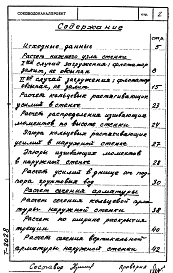 СОЮЗВОДОКАНАЛПРОЕКТ
стр. 2
Содержание
стр.
Исходные данные 5
Расчет нижнего узла стенки
I-й случай загружения: резервуар
залит, не обсыпан
II-й случай загружения: резервуар
обсыпан, не залит 15
Расчет кольцевых растягивающих
усилий в стенке 23
Расчет распределения изгибающих
моментов по высоте стенки 24
Эпюра кольцевых растягивающих
усилий в наружной стенке 27
Эпюры изгибающих моментов
в наружной стенке 28
Расчет усилий в днище от под-
пора грунтовых вод 30
Расчет сечения арматуры
Расчет сечения кольцевой арма-
туры наружной стенки 38
Расчет по ширине раскрытия
трещин 40
Расчет сечения вертикальной
арматуры наружной стенки 42
Т-2028
Составил
Проверил